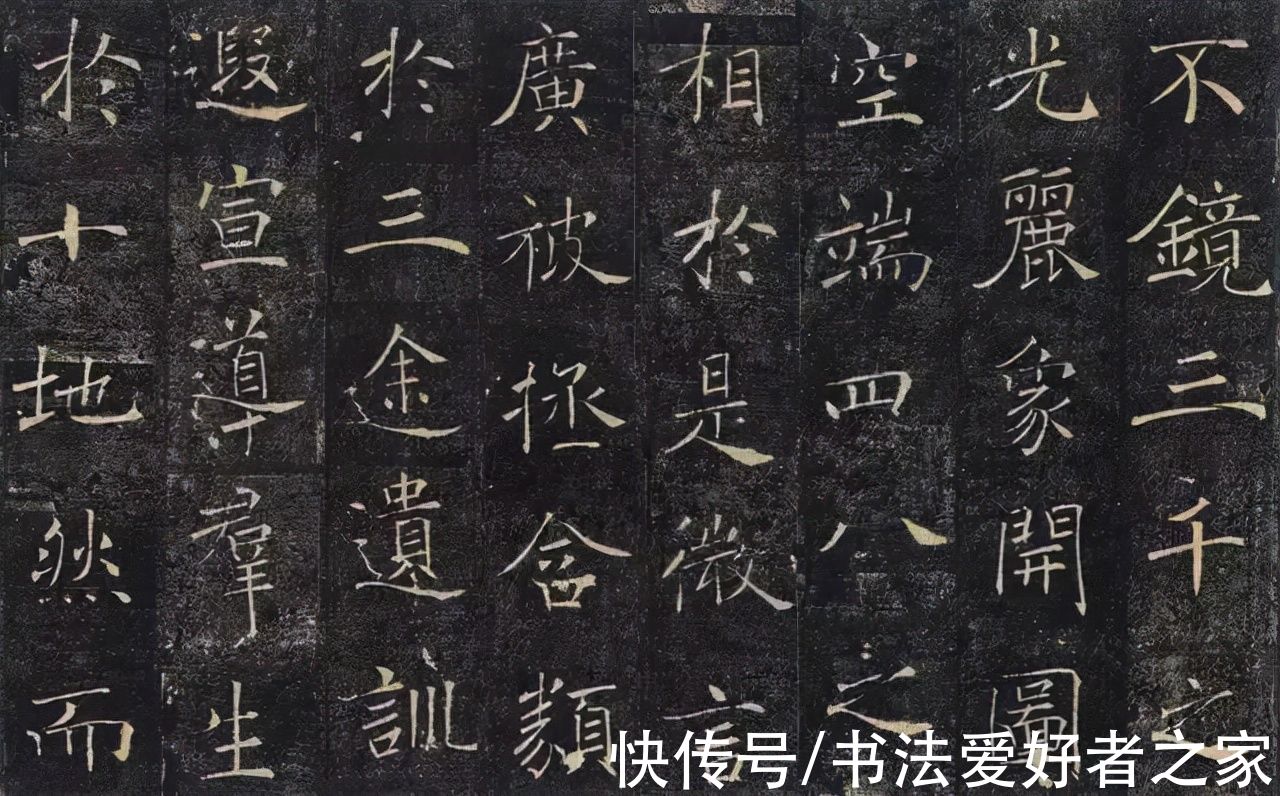 不鏡三千之
光麗象開圖
空端四八之
相於是微言
廣被拯含類
於三途遺訓
遐宣導羣生
於十地然而
快传号/书法爱好者之家